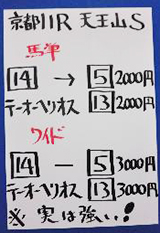 京都11R 天王山S
馬単
14 → 5 2000円
テーオーヘリオス 13 2000円
ワイド
14 − 5 3000円
テーオーヘリオス 13 3000円
※ 実は強い!